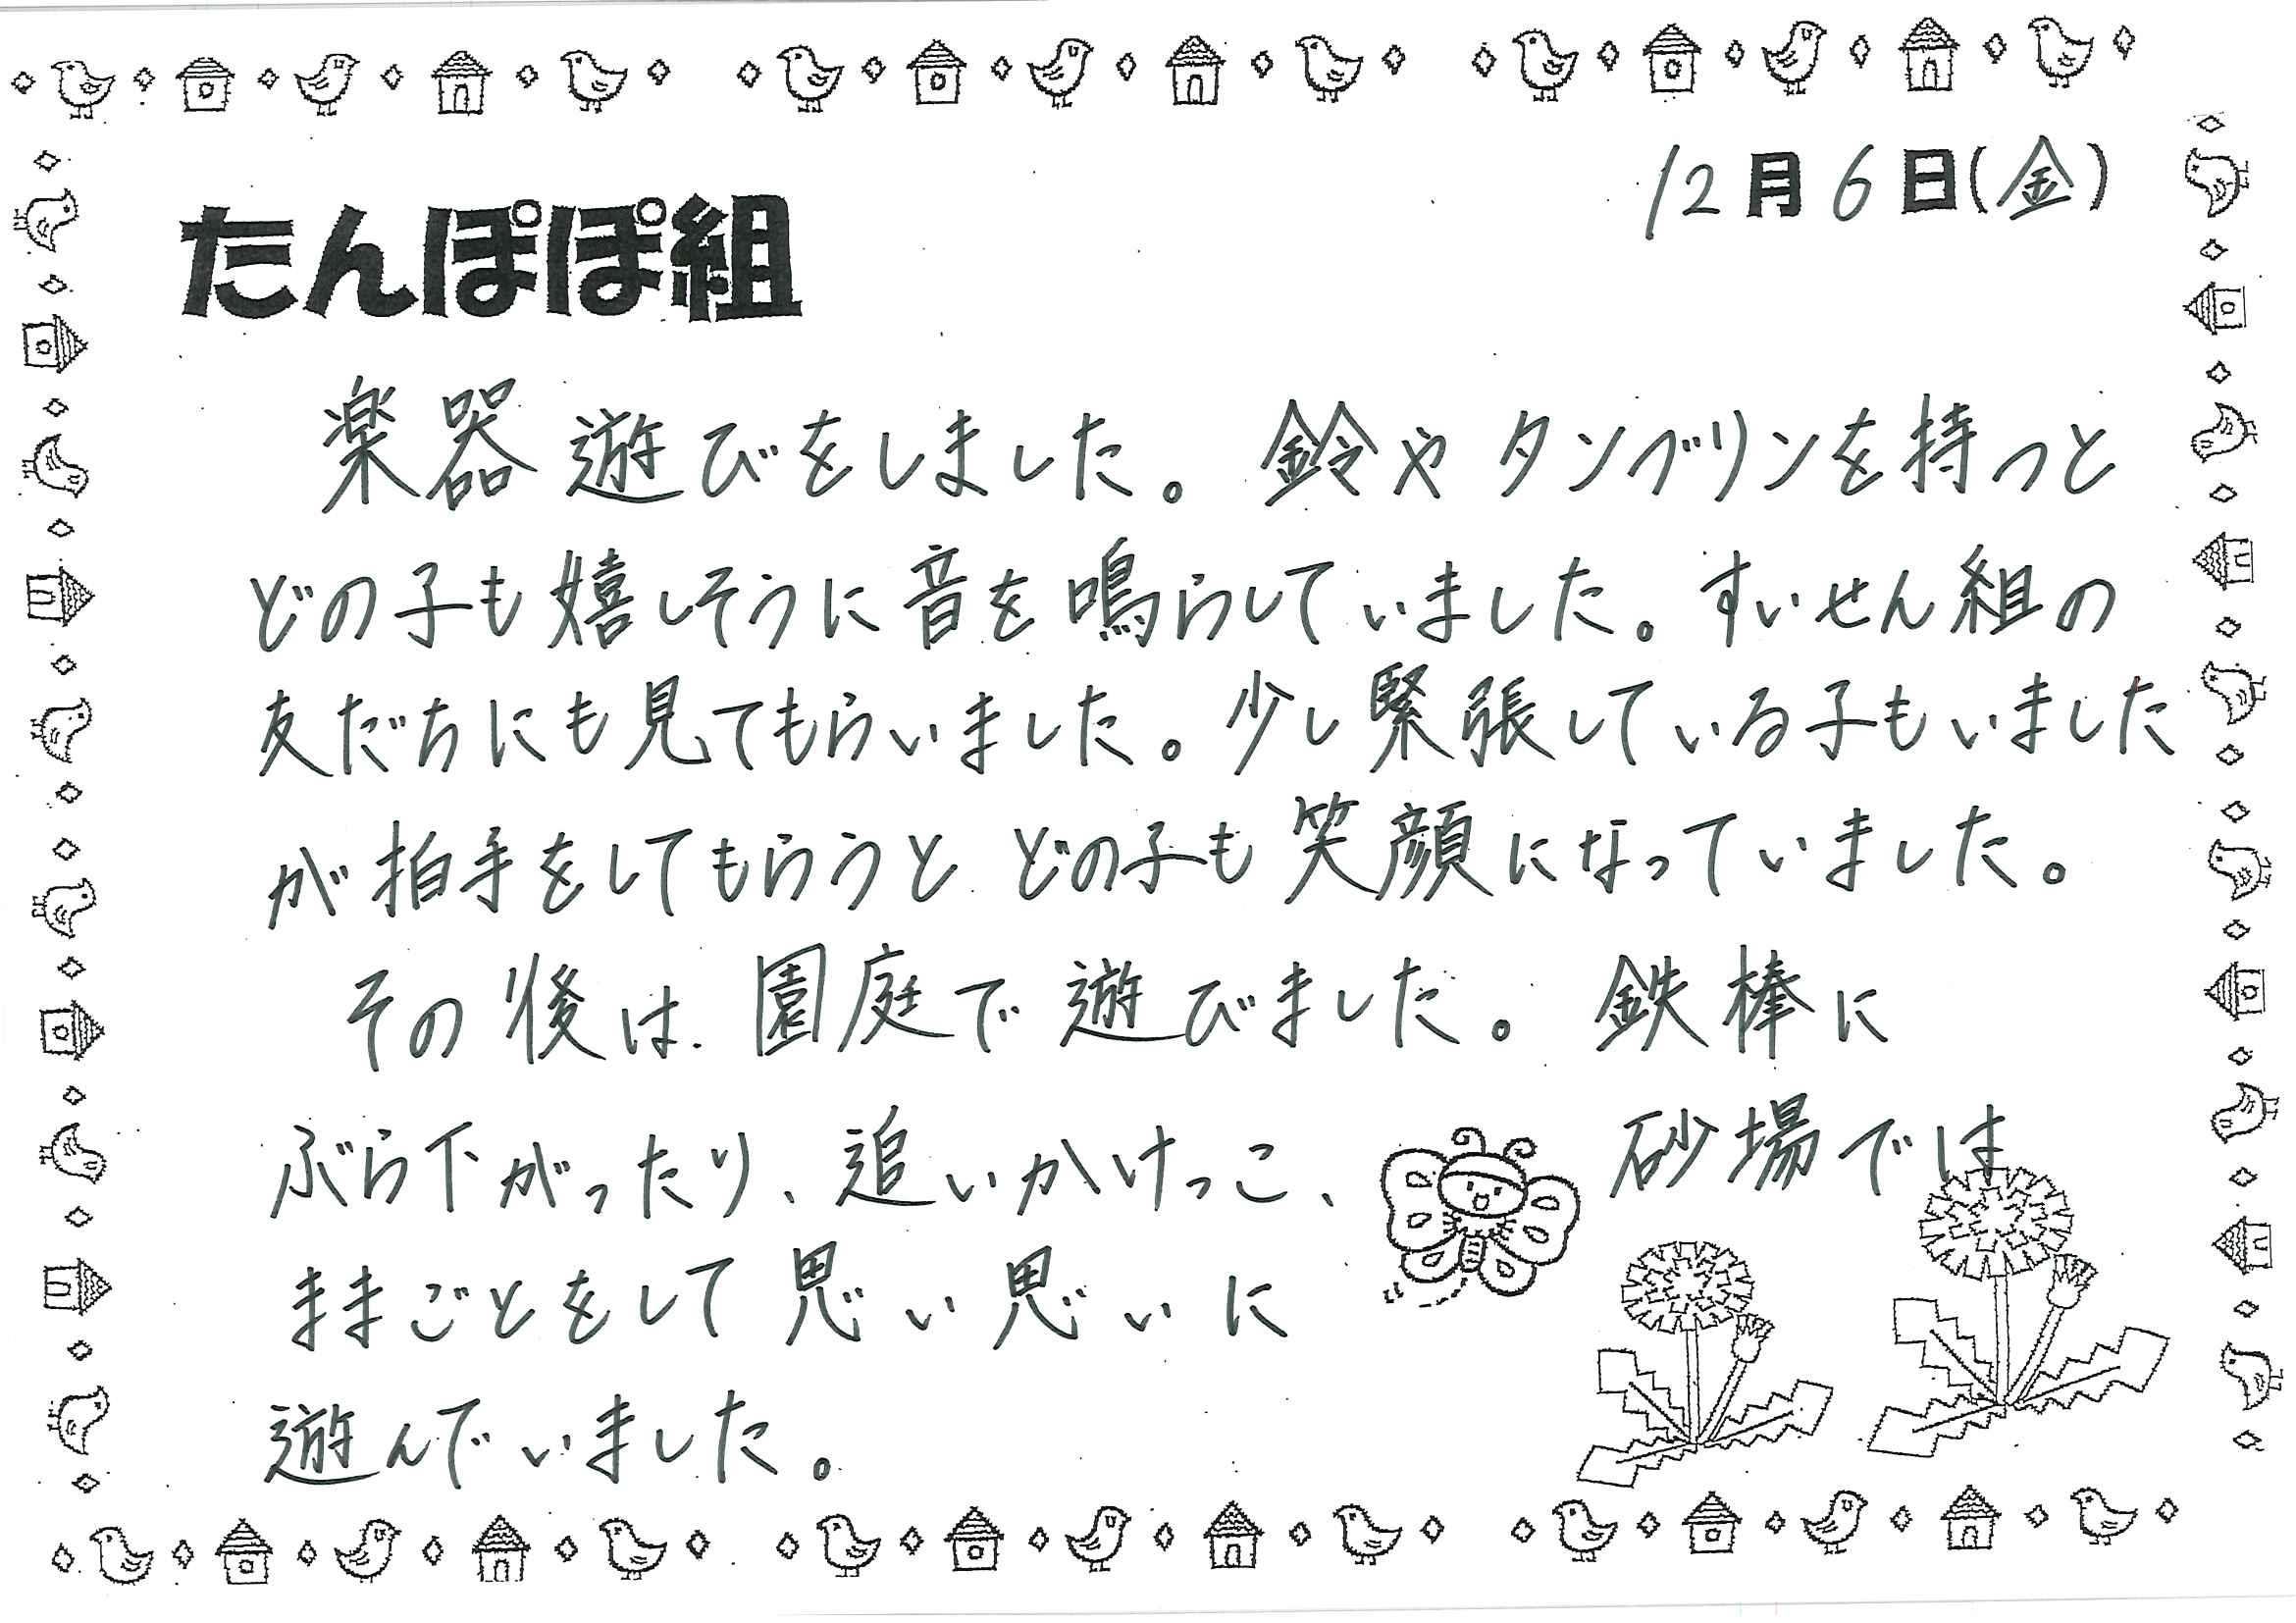 12月6日(金)
たんぽぽ組
楽器遊びをしました。鈴やタンブリンを持つと
どの子も嬉しそうに音を鳴らしていました。すいせん組の
友だちにも見てもらいました。少し緊張している子もいました
が拍手をしてもらうと、どの子も笑顔になっていました。
その後は、園庭で遊びました。鉄棒に
ぶら下がったり、追いかけっこ、砂場では
ままごとをして思い思いに
遊んでいました。